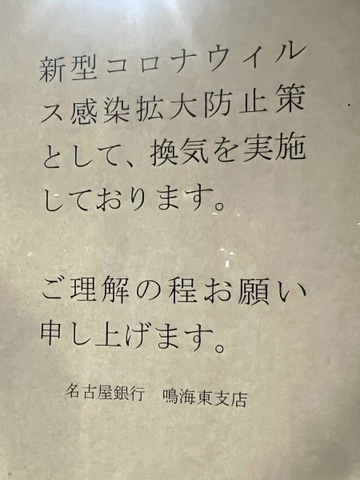 新型コロナウィル
ス感染拡大防止策
として、換気を実施
しております。
ご理解の程お願い
申し上げます。
名古屋銀行　鳴海東支店